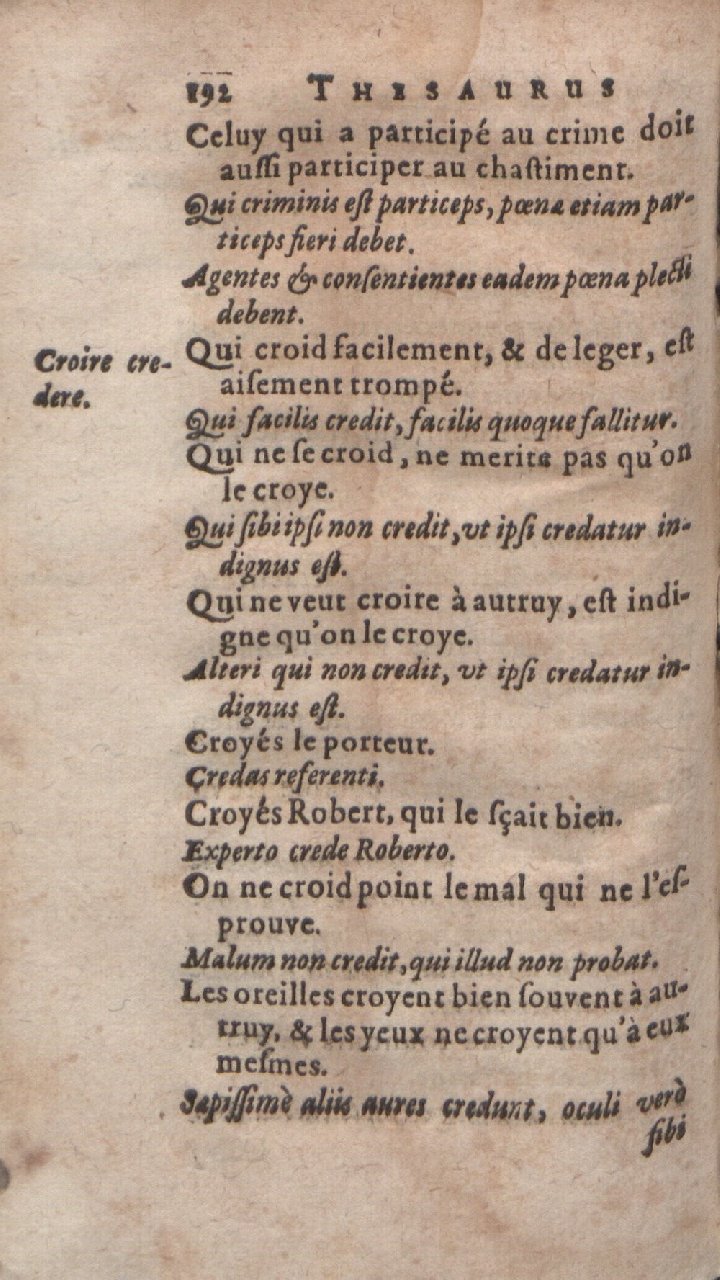 192 THESAURUS
Celuy qui a participé au crime doit
auſſi participer au chaſtiment.
Qui criminis eſt particeps, pœnæ etiam par-
ticeps fieri debet.
Agentes & conſentientes eadem pœna plecti
debent.
Croire cre-
dere.
Qui croid facilement, & de leger, eſt
aiſement trompé.
Qui facilis credit, facilis quoque fallitur.
Qui ne ſe croid, ne merite pas qu'on
le croye.
Qui ſibi ipſi non credit, vt ipſi credatur in-
dignus eſt.
Qui ne veut croire à autruy, eſt indi-
gne qu'on le croye.
Alteri qui non credit, vt ipſi credatur in-
dignus eſt.
Croyés le porteur.
Credas referenti.
Croyés Robert, qui le ſçait bien.
Experto crede Roberto.
On ne croid point le mal qui ne l'eſ-
prouve.
Malum non credit, qui illud non probat.
Les oreilles croyent bien ſouvent à au-
truy, & les yeux ne croyent qu'à eux
meſmes.
Sæpiſſimè aliis aures credunt, oculi verò
ſibi